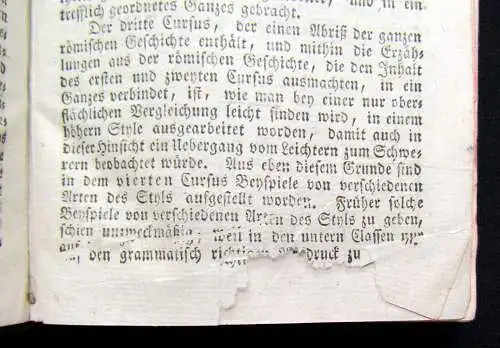 und in ein-
trefflich geordnetes Ganzes gebracht.
Der dritte Cursus, der einen Abriß der ganzen
römischen Geschichte enthält, und mithin die Erzäh-
lungen aus der römischen Geschichte, die den Inhalt
des ersten und zweyten Cursus ausmachten, in ein
Ganzes verbindet, ist, wie man bey einer nur ober-
flächlichen Vergleichung leicht finden wird, in einem
höhern Style ausgearbeitet worden, damit auch in
dieser Hinsicht ein Uebergang vom Leichtern zum Schwe-
rern beobachtet würde. Aus eben diesem Grunde sind
in dem vierten Cursus Beyspiele von verschiedenen
Arten des Styls aufgestellt worden. Früher solche
Beyspiele von verschiedenen Arten des Styls zu geben,
schien unzweckmäßig, weil in den untern Classen
den grammatisch zu